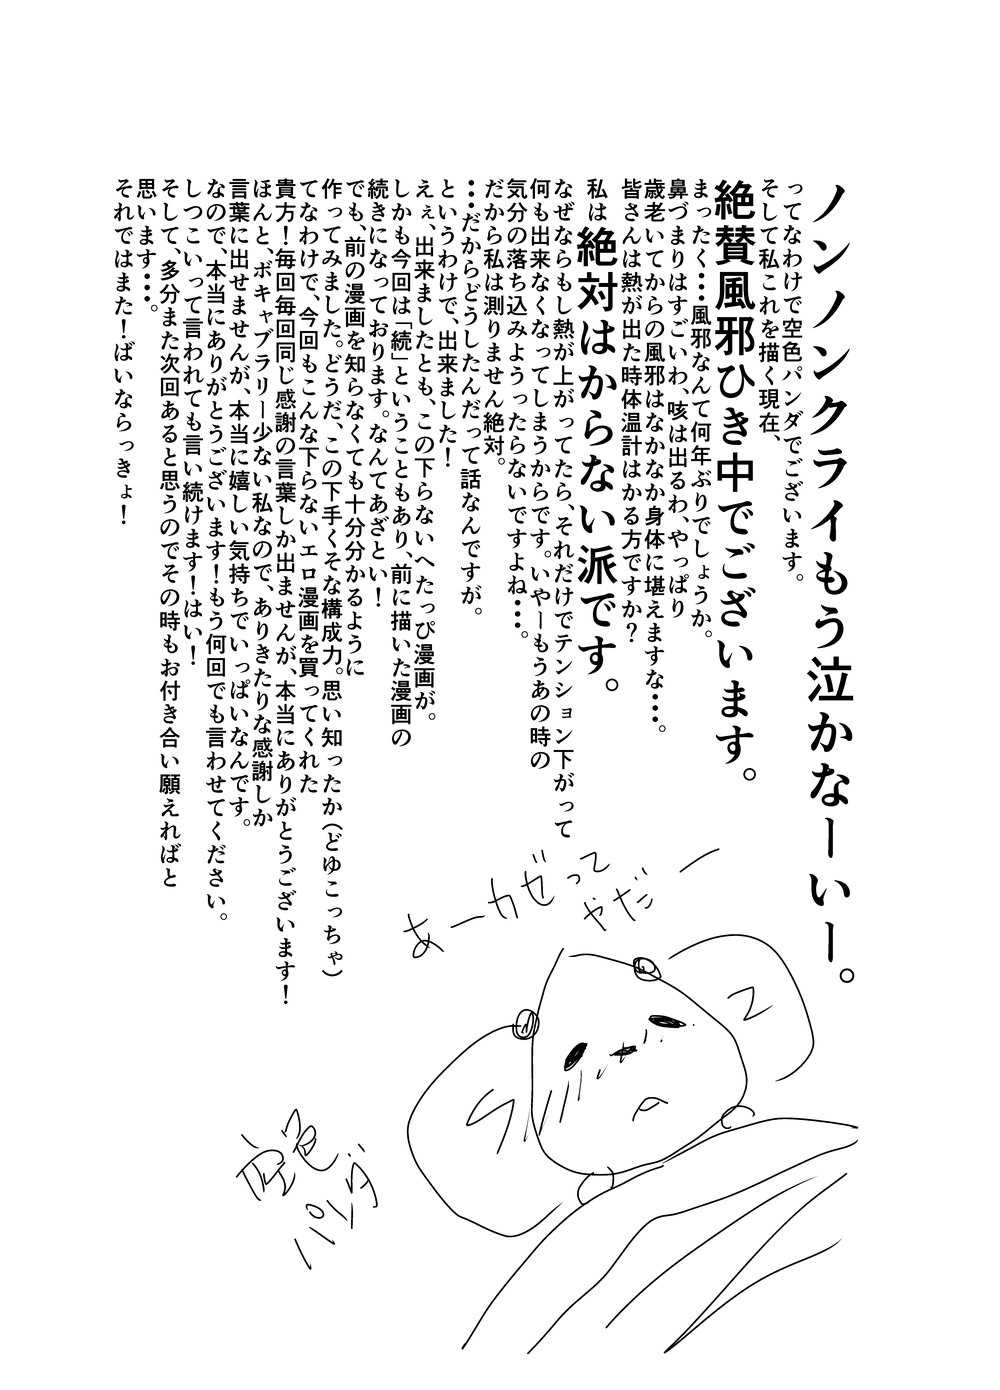 ノンノンクライもう泣かなーいー。
ってなわけで空色パンダでございます。
そして私これを描く現在、
絶賛風邪ひき中でございます。
まったく・・・風邪なんて何年ぶりでしょうか。
鼻づまりはすごいわ、咳は出るわ、やっぱり
歳老いてからの風邪はなかなか身体に堪えますな・・・。
皆さんは熱が出た時体温計はかる方ですか？
私は絶対はからない派です。
なぜならもし熱が上がってたら、それだけでテンション下がって
何も出来なくなってしまうからです。いやーもうあの時の
気分の落ち込みようったらないですよね・・・。
だから私は測りません絶対。
・・・だからどうしたんだって話なんですが。
というわけで、出来ました！
えぇ、出来ましたとも、この下らないへたっぴ漫画が。
しかも今回は「続」ということもあり、前に描いた漫画の
続きになっております。なんてあざとい！
でも、前の漫画を知らなくても十分分かるように
作ってみました。どうだ、この下手くそな構成力。思い知ったか（どゆこっちゃ）
てなわけで、今回もこんな下らないエロ漫画を買ってくれた
貴方！毎回毎回同じ感謝の言葉しか出ませんが、本当にありがとうございます！
ほんと、ボキャブラリー少ない私なので、ありきたりな感謝しか
言葉に出せませんが、本当に嬉しい気持ちでいっぱいなんです。
なので、本当にありがとうございます！もう何回でも言わせてください。
しつこいって言われても言い続けます！はい！
そして、多分また次回あると思うのでその時もお付き合い願えればと
思います・・・。
それではまた！ばいならっきょ！
あーカゼって
やだー
空色
パンダ